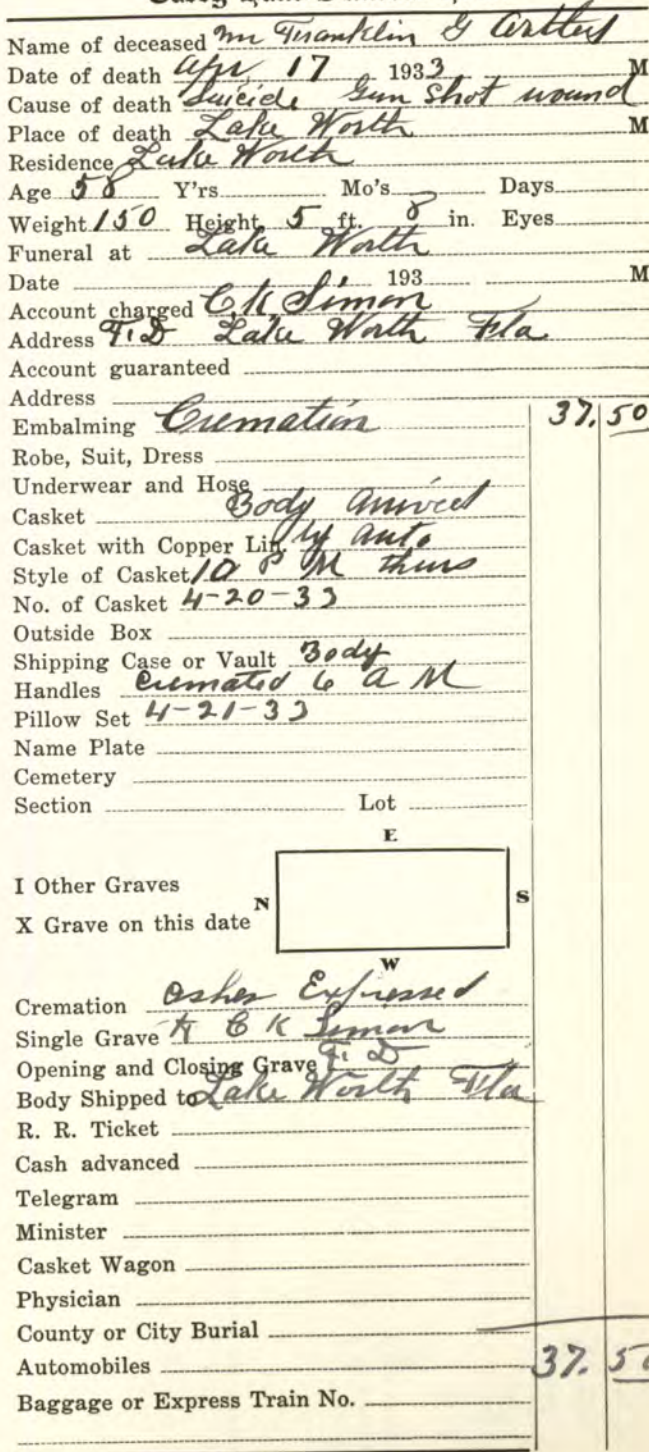 Name of deceased Mr Franklin G
Date of death Apr 17 1933 M
Cause of death Suicide Gun Shot wound
Place of death Lake Worth M
Residence Lake Worth
Age 58 Y'rs Mo's Days
Weight 150 Height 5 ft. 8 in. Eyes
Funeral at Lake Worth
Date 193 M
Account charged C.K. Simon
Address F.D Lake Worth Fla
Account guaranteed
Address
Embalming Cremation 37.50
Robe, Suit, Dress
Underwear and Hose
Casket Body arrived
Casket with Copper Lin. by auto
Style of Casket 10 P M thurs
No. of Casket 4-20-33
Outside Box
Shipping Case or Vault Body
Handles Cremated 6 A M
Pillow Set 4-21-33
Name Plate
Cemetery
Section Lot
E
I Other Graves
N S
X Grave on this date
W
Cremation Ashes Expressed
Single Grave to C K Simon
Opening and Closing Grave F. D
Body Shipped to Lake Worth Fla
R. R. Ticket
Cash advanced
Telegram
Minister
Casket Wagon
Physician
County or City Burial
Automobiles 37. 50
Baggage or Express Train No.